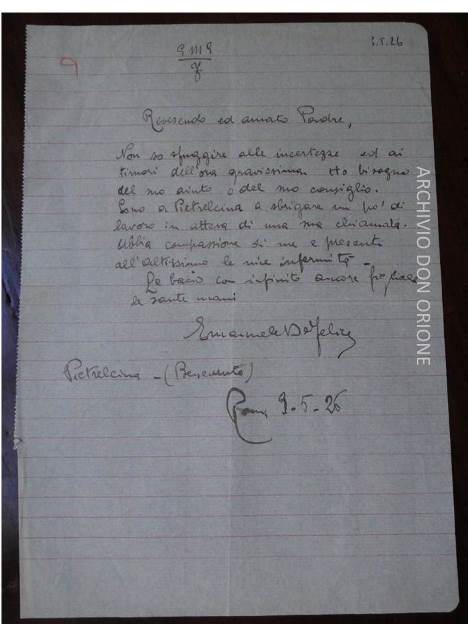 3.5.26
9
Reverendo ed amato Padre,
Non so sfuggire alle incertezze ed ai
timori dell'ora gravissima. Ho bisogno
del suo aiuto e del suo consiglio.
Sono a Pietrelcina a sbrigare un po' di
lavoro in attesa di una sua chiamata.
Abbia compassione di me e presenti
all'Altissimo le mie infermità -
Le bacio con infinito amore figliale
le sante mani
Emanuele De Felice
Pietrelcina - (Benevento)
Roma 9-5-26
ARCHIVIO DON ORIONE